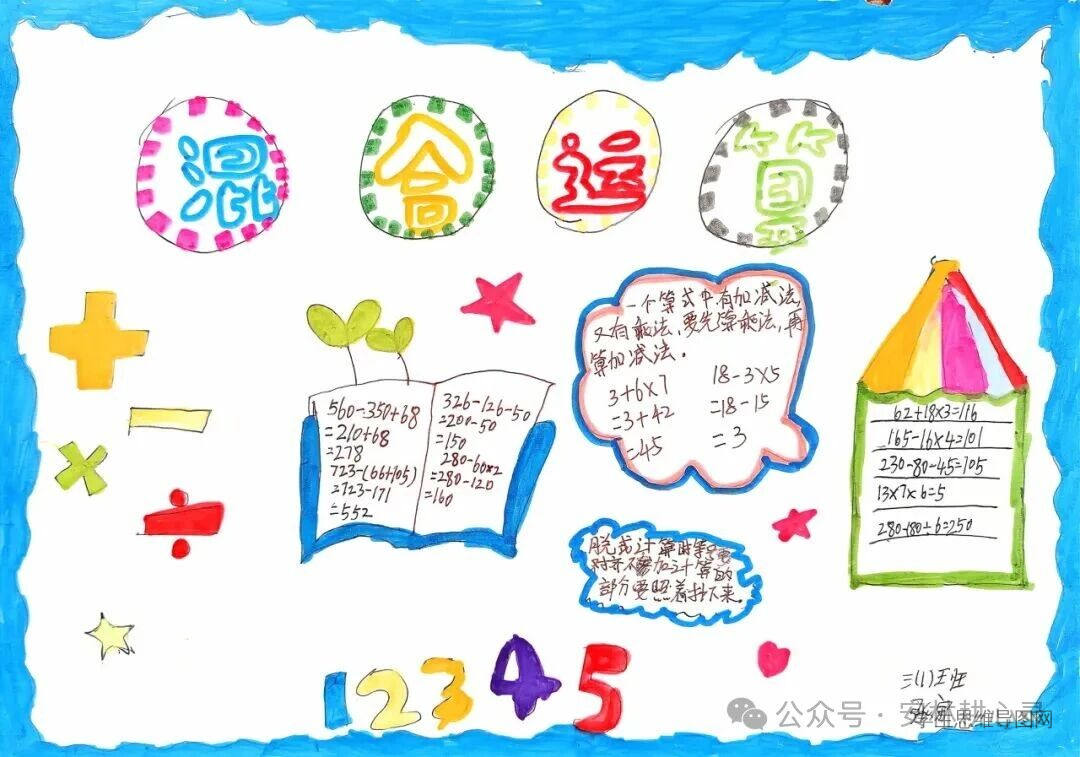 混合运算
560-350+68
=210+68
=278
723-(66+105)
=723-171
=552
326-126-50
=200-50
=150
280-60×2
=280-120
=160
一个算式中有加减法,
又有乘法,要先算乘法,再
算加减法.
3+6×7
=3+42
=45
18-3×5
=18-15
=3
62+18×3=116
165-16×4=101
230-80-45=105
13×7×6=5
脱式计算时等号要
对齐不参加计算的
部分要照着抄下来.
12345
三(1)王班
公众号·安
耕心灵
思维导图网